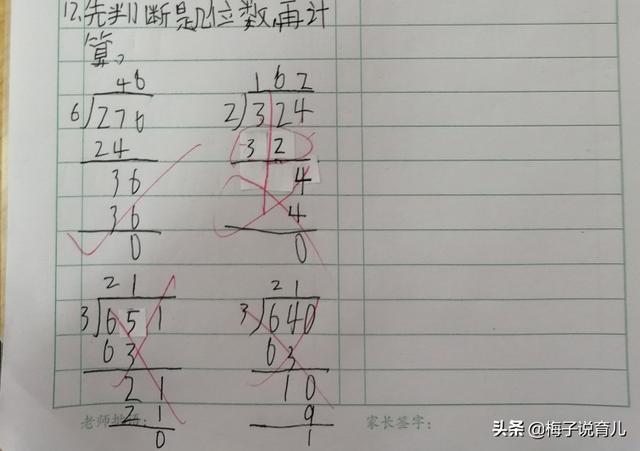 12.先判断是几位数,再计
算。
46
6)276
24
36
36
0
162
2)324
32
4
4
0
21
3)651
63
21
21
0
21
3)640
63
10
9
1
家长签字:
头条 @梅子说育儿